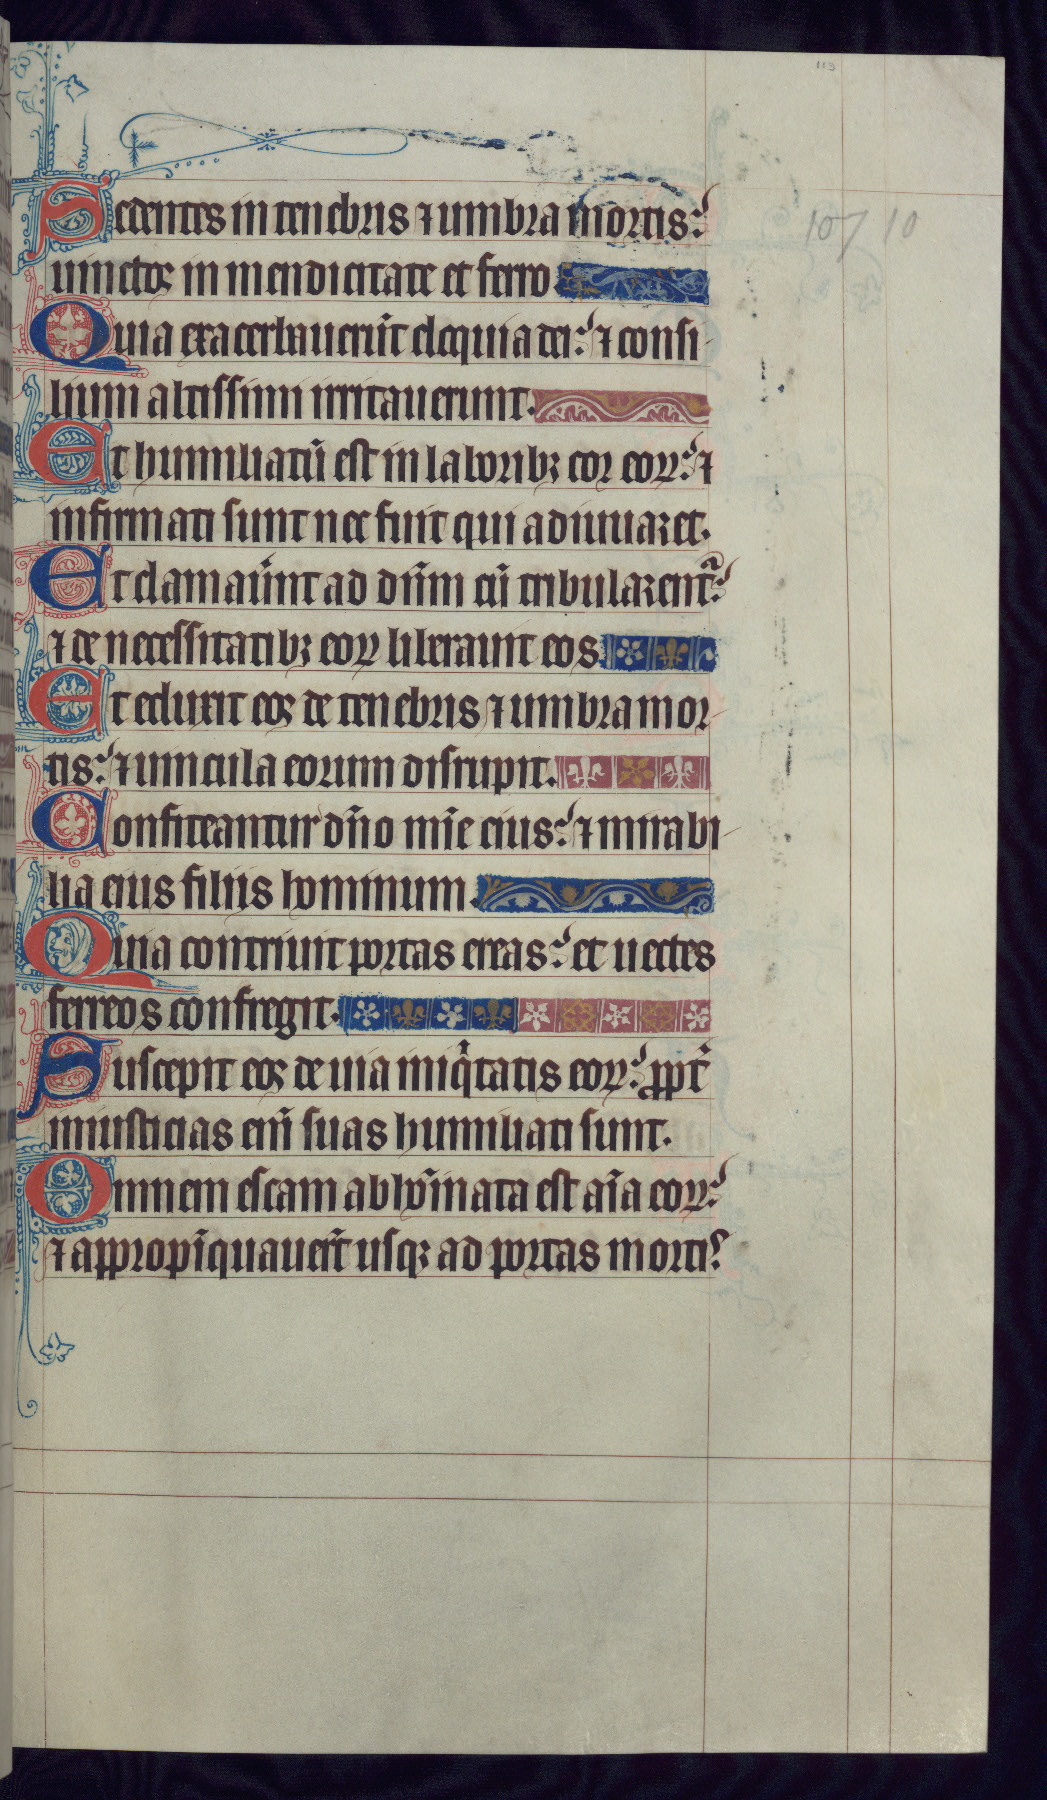 113
107 10
Sedentes in tenebris ⁊ umbra mortis:
uinctos in mendicitate et ferro
Quia exacerbauerūt eloquia dei: ⁊ consi-
lium altissimi irritauerunt.
Et humiliatū est in laboribꝫ cor eoꝝ: ⁊
infirmati sunt nec fuit qui adiuuaret.
Et clamaūnt ad dn̄m cū tribularent᷑:
⁊ de necessitatibꝫ eoꝝ liberauit eos
Et eduxit eos de tenebris ⁊ umbra mor-
tis: ⁊ uincula eorum disrupit.
Confiteantur dn̄o mīe eius: ⁊ mirabi-
lia eius filiis hominum.
Quia contriuit portas ereas: et uectes
ferreos confregit.
Suscepit eos de uia iniqͥtatis eoꝝ: ꝓpt̄
iniusticias enī suas humiliati sunt.
Omnem escam abhoīnata est aīa eoꝝ:
⁊ appropīquauerūt usqꝫ ad portas mortis